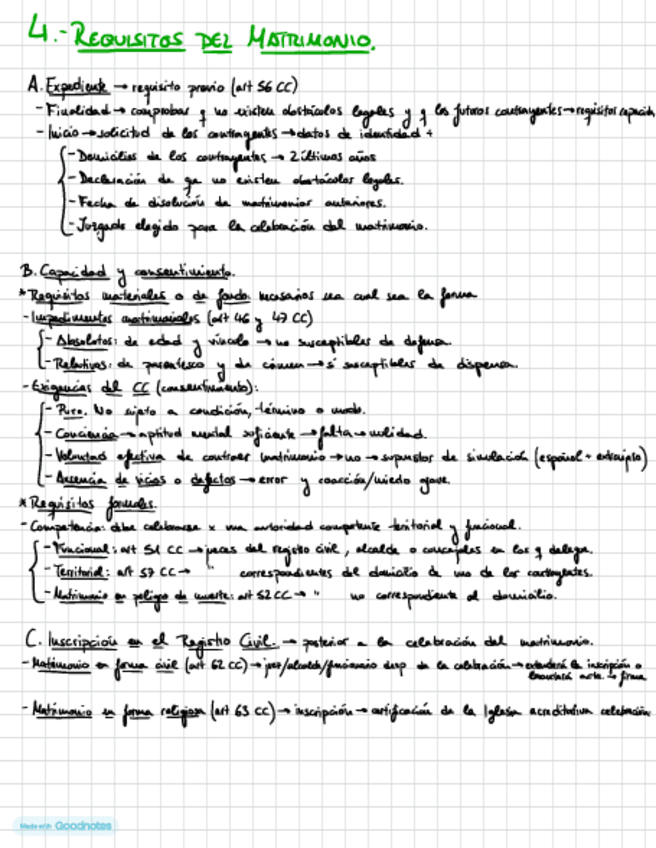 4.- REQUISITOS DEL MATRIMONIO.
A. Expediente → requisito previo (art 56 CC)
- Finalidad → comprobar q no existen obstáculos legales y q los futuros contrayentes → requisitos capacid
- Inicio → solicitud de los contrayentes → datos de identidad +
- Domicilios de los contrayentes → 2 últimos años
- Declaración de qe no existen obstáculos legales.
- Fecha de disolución de matrimonios anteriores.
- Juzgado elegido para la celebración del matrimonio.
B. Capacidad y consentimiento.
* Requisitos materiales o de fondo. necesarios sea cual sea la forma
- Impedimentos matrimoniales (art 46 y 47 CC)
- Absolutos: de edad y vínculo → no susceptibles de defensa.
- Relativos: de parentesco y de crimen → sí susceptibles de dispensa.
- Exigencias del CC (consentimiento):
- Puro. No sujeto a condición, término o modo.
- Conciencia → aptitud mental suficiente → falta → nulidad.
- Voluntad efectiva de contraer matrimonio → no → supuestos de simulación (español + extranjero)
- Ausencia de vicios o defectos → error y coacción/miedo grave.
* Requisitos formales.
- Competencia: debe celebrarse x una autoridad competente territorial y funcional.
- Funcional: art 51 CC → jueces del registro civil, alcalde o concejales en los q delega.
- Territorial: art 57 CC → " correspondientes del domicilio de uno de los contrayentes.
- Matrimonio en peligro de muerte: art 52 CC → " no correspondiente al domicilio.
C. Inscripción en el Registro Civil. → posterior a la celebración del matrimonio.
- Matrimonio en forma civil (art 62 CC) → juez/alcalde/funcionario desp de la celebración → extenderá la inscripción o
acta. → firma
- Matrimonio en forma religiosa (art 63 CC) → inscripción → certificación de la Iglesia acreditativa celebración
Made with Goodnotes